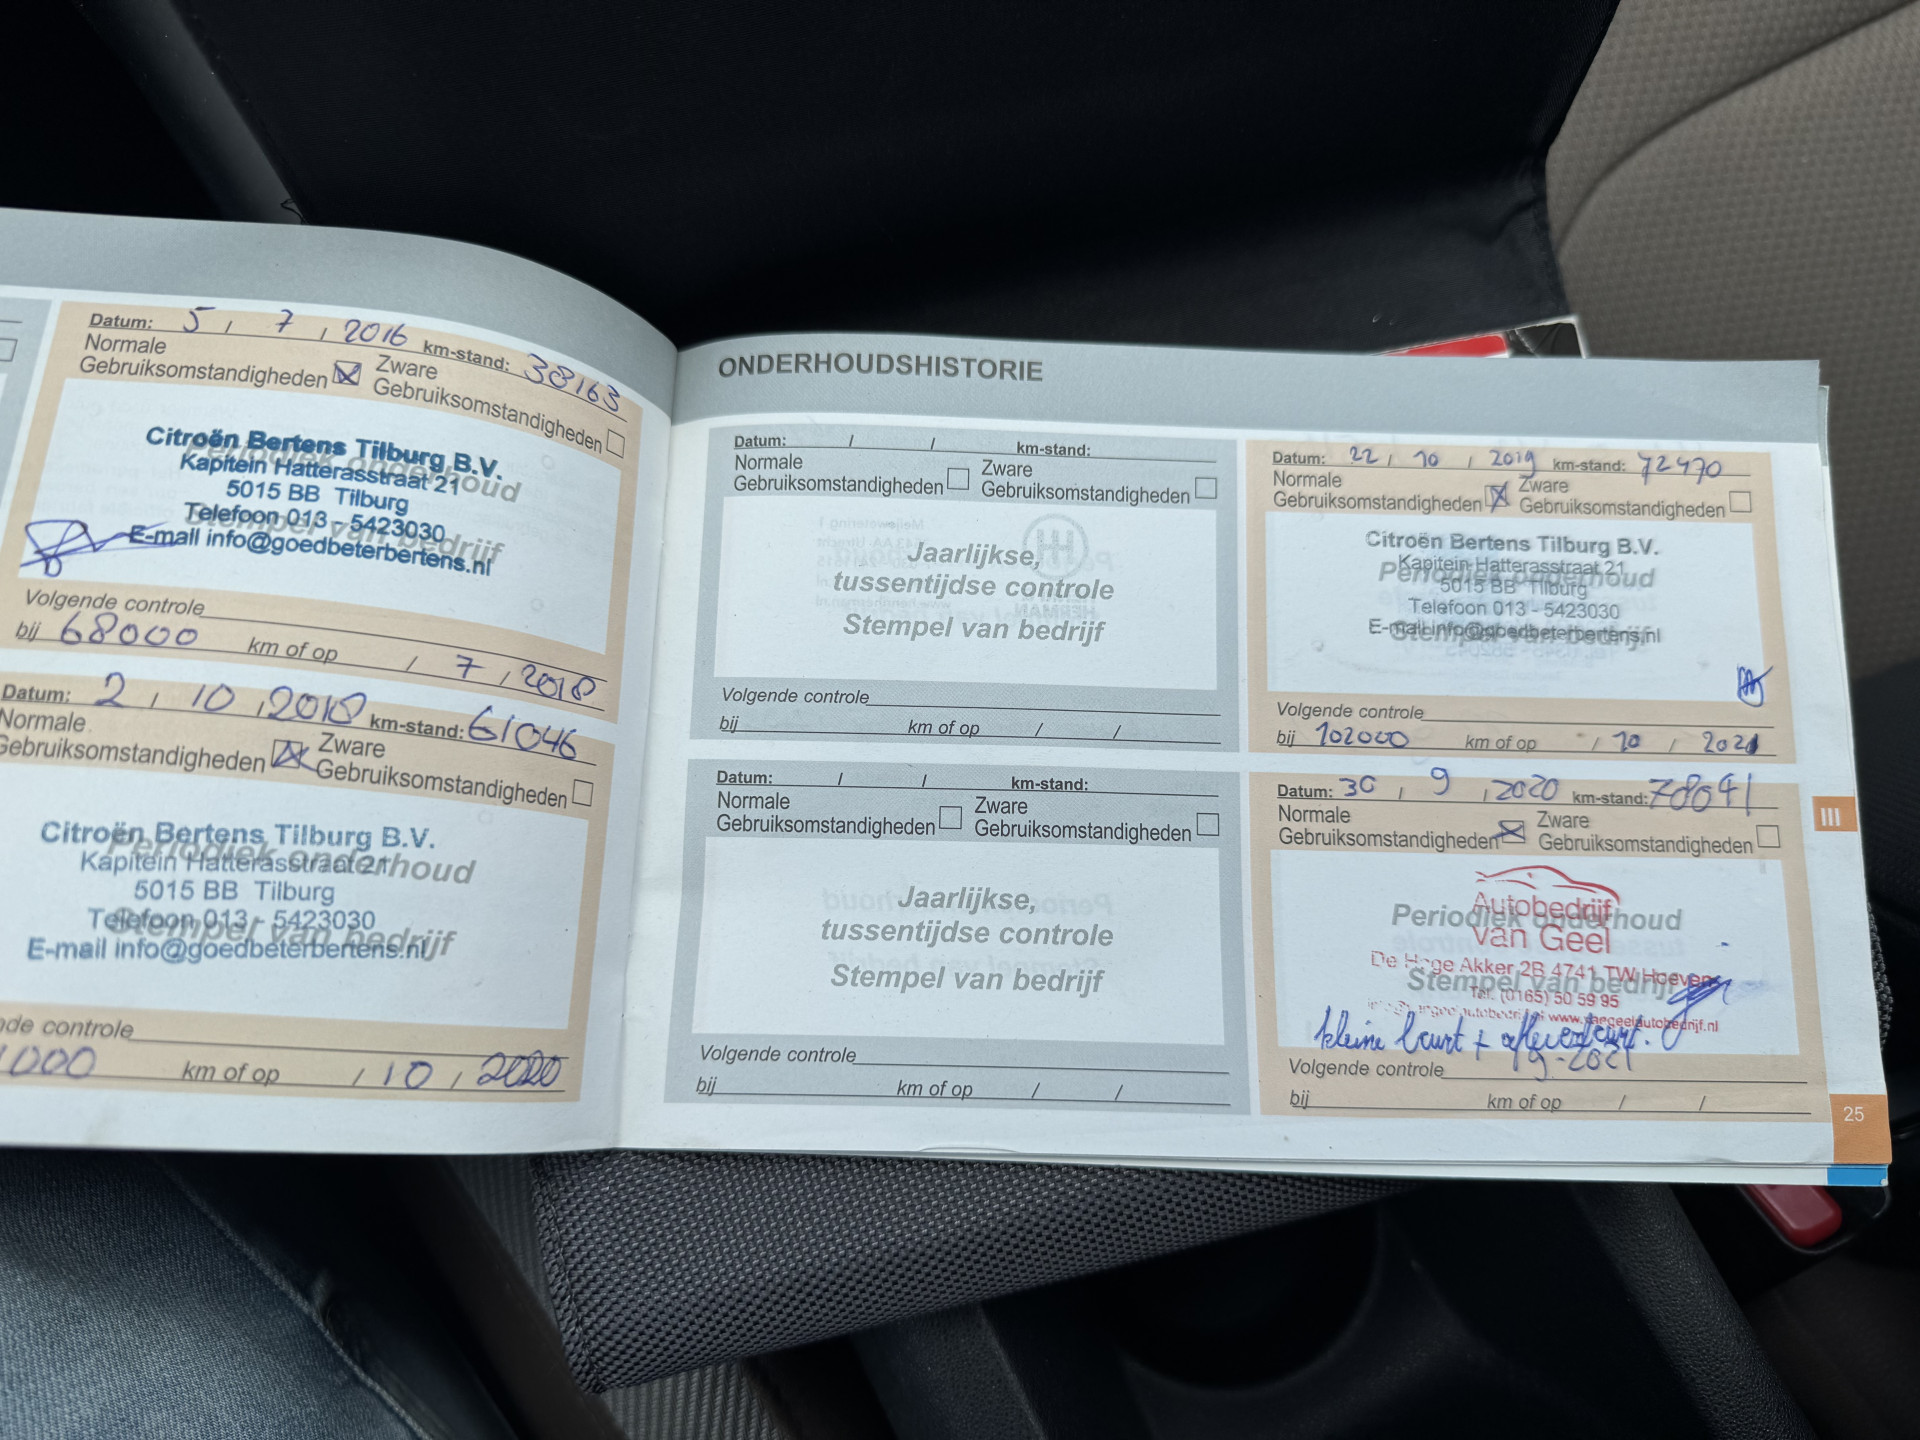 Datum: 5 / 7 / 2016 km-stand: 38163
Normale
Gebruiksomstandigheden
Zware
Gebruiksomstandigheden
Citroën Bertens Tilburg B.V.
Kapitein Hatterasstraat 21
5015 BB Tilburg
Telefoon 013 - 5423030
E-mail info@goedbeterbertens.nl
Periodiek onderhoud
Stempel van bedrijf
Volgende controle
bij 68000 km of op / 7 / 2018
Datum: 2 / 10 / 2018 km-stand: 61046
Normale
Gebruiksomstandigheden
Zware
Gebruiksomstandigheden
Citroën Bertens Tilburg B.V.
Kapitein Hatterasstraat 21
5015 BB Tilburg
Telefoon 013 - 5423030
E-mail info@goedbeterbertens.nl
Periodiek onderhoud
Stempel van bedrijf
controle
km of op / 10 / 2020
ONDERHOUDSHISTORIE
Datum: / / km-stand:
Normale
Gebruiksomstandigheden
Zware
Gebruiksomstandigheden
Jaarlijkse,
tussentijdse controle
Stempel van bedrijf
Volgende controle
bij km of op / /
Datum: / / km-stand:
Normale
Gebruiksomstandigheden
Zware
Gebruiksomstandigheden
Jaarlijkse,
tussentijdse controle
Stempel van bedrijf
Volgende controle
bij km of op / /
Datum: 22 / 10 / 2019 km-stand: 72470
Normale
Gebruiksomstandigheden
Zware
Gebruiksomstandigheden
Citroën Bertens Tilburg B.V.
Kapitein Hatterasstraat 21
5015 BB Tilburg
Telefoon 013 - 5423030
E-mail info@goedbeterbertens.nl
Periodiek onderhoud
Stempel van bedrijf
Volgende controle
bij 102000 km of op / 10 / 2021
Datum: 30 / 9 / 2020 km-stand: 78041
Normale
Gebruiksomstandigheden
Zware
Gebruiksomstandigheden
Autobedrijf
van Geel
De Hoge Akker 2B 4741 TW Hoeven
Tel. (0165) 50 59 95
www.vangeelautobedrijf.nl
Periodiek onderhoud
Stempel van bedrijf
kleine beurt + afleverbeurt.
9-2021
Volgende controle
bij km of op / /
III
25